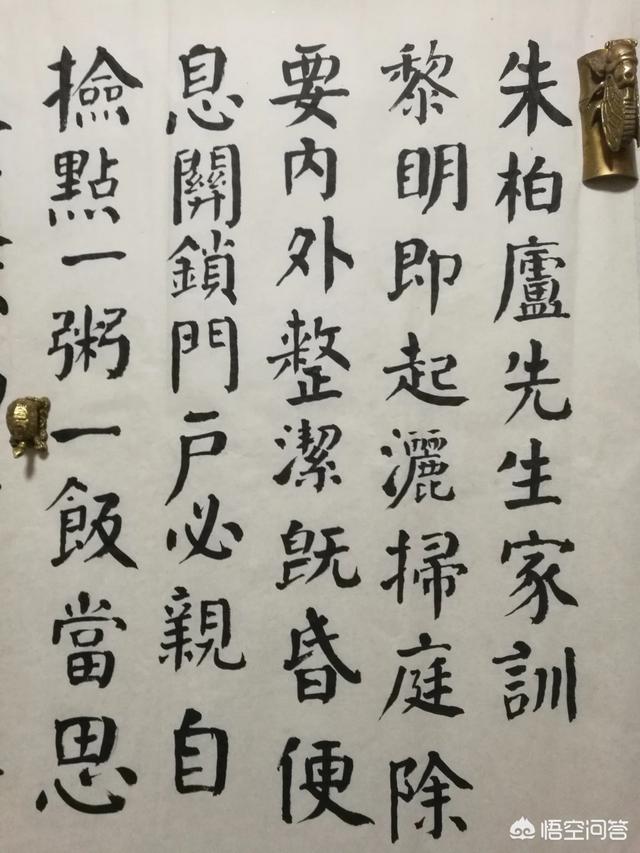 朱柏廬先生家訓
黎明即起灑掃庭除
要内外整潔既昏便
息關鎖門户必親自
撿點一粥一飯當思
悟空问答